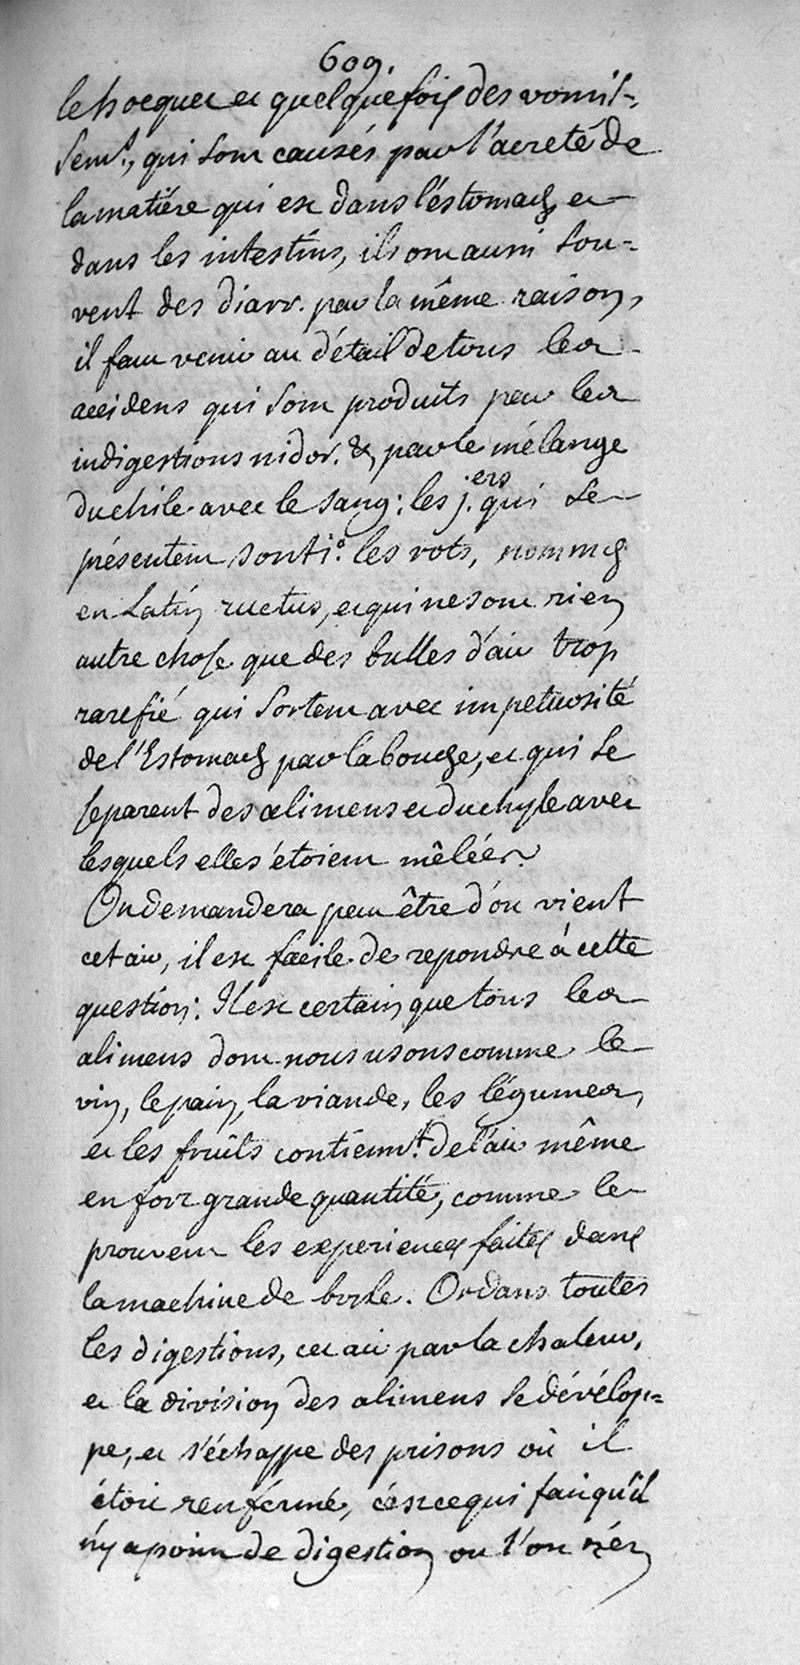 609.
le hocquet et quelquefois des vomis-
sem.t, qui sont causés par l'acreté de
la matiére qui est dans l'éstomach et
dans les intestins, ils ont aussi sou-
vent des diarr. par la même raison,
il faut venir au détail de tous les
accidens qui sont produits par les
indigestions nidor. & par le mélange
du chile avec le sang: les j.ers qui se
présentent sont 1.o les rots, nommés
en Latin ructus, et qui ne sont rien
autre chose que des bulles d'air trop
rarefié qui sortent avec impetuosité
de l'Estomach par la bouche, et qui se
separent des alimens et du chyle avec
lesquels elles étoient mêlées.
On demandera peut être d'ou vient
cet air, il est facile de repondre à cette
question: Il est certain que tous les
alimens dont nous usons comme le
vin, le pain, la viande, les légumes,
et les fruits contienn.t de l'air même
en fort grande quantité, comme le
prouvent les experiences faites dans
la machine de boyle. Or dans toutes
les digestions, cet air par la chaleur,
et la division des alimens se dévélop=
pe, et s'échappe des prisons où il
étoit renfermé, c'est ce qui fait qu'il
n'y a point de digestion ou l'on n'en